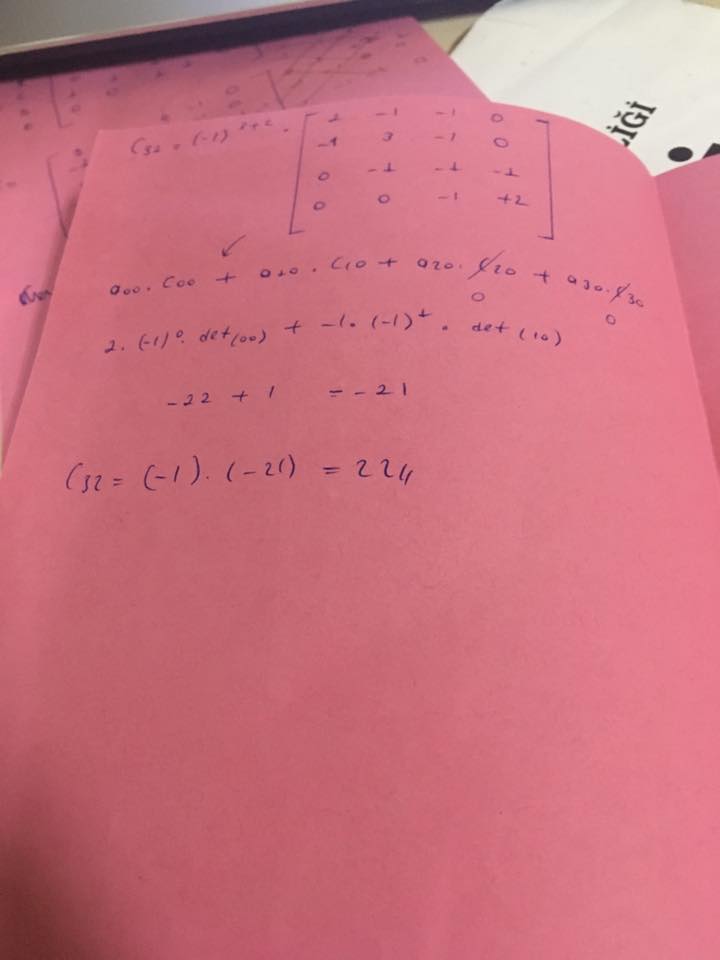 C32 = (-1)^3+2 .
2 -1 -1 0
-1 3 -1 0
0 -1 -1 -1
0 0 -1 +2
a00.C00 + a10.C10 + a20.C20 + a30.C30
0 0
2.(-1)^0.det(00) + -1.(-1)^1.det(10)
-22 + 1 = -21
C32 = (-1).(-21) = 22//
LİĞİ